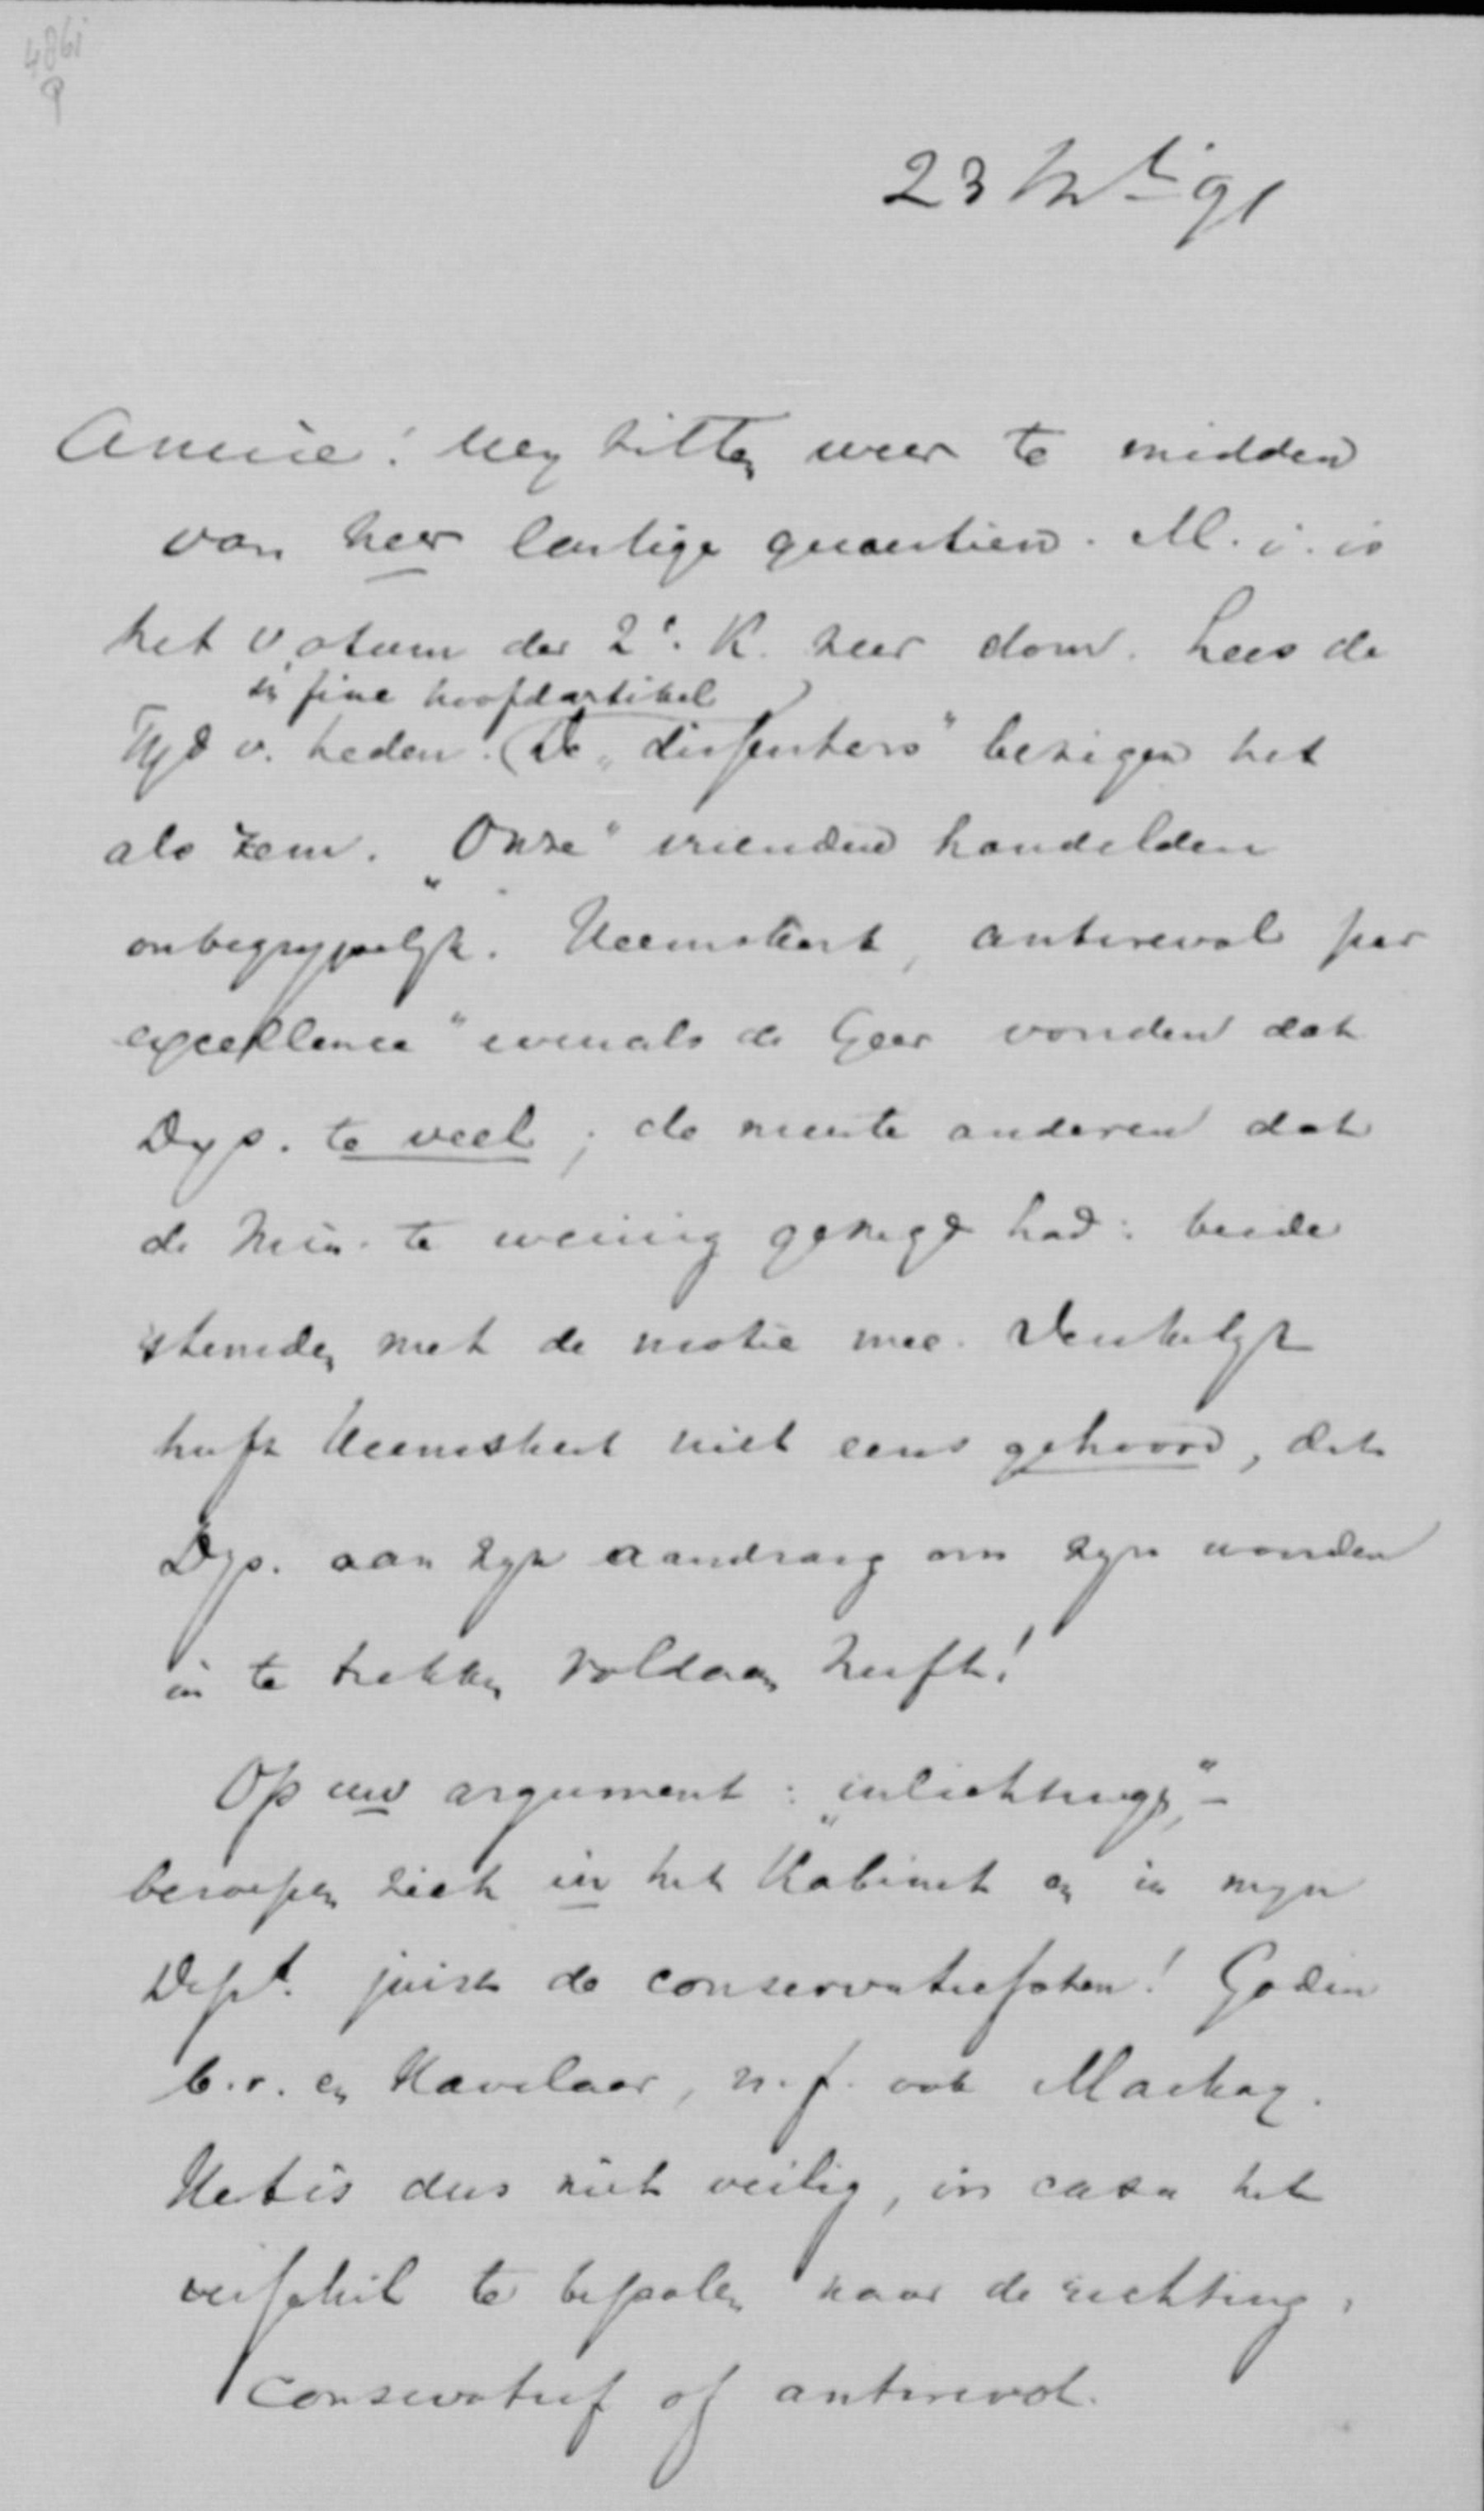 4861
23 Mrt 91
Amice! Wy zitten weer te midden
van zeer lastige quaestien. M. i. is
het votum der 2e. K. zeer dom. Lees de
in fine hoofdartikel
Tyd v. heden. (De „dissenters" bezigen het
als zem. „Onze" vrienden handelden
onbegrypelyk. Heemskerk, antirevol par
excellence" evenals de Geer vonden dat
Dys. te veel; de meeste anderen dat
de Min. te weinig gezegd had: beide
stemden met de motie mee. Denkelyk
heeft Heemskerk niet eens gehoord, dat
Dys. aan zyn aandrang om zyn woorden
in te trekken voldaan heeft!
Op uw argument: „inlichtingen,"-
beroepen zich in het Kabinet en in myn
Dept. juist de conservatiefsten! Godin
b.v. en Havelaar, n.f. ook Mackay.
Het is dus niet veilig, in casu het
verschil te bepalen naar de richting,
conservatief of antirevol.